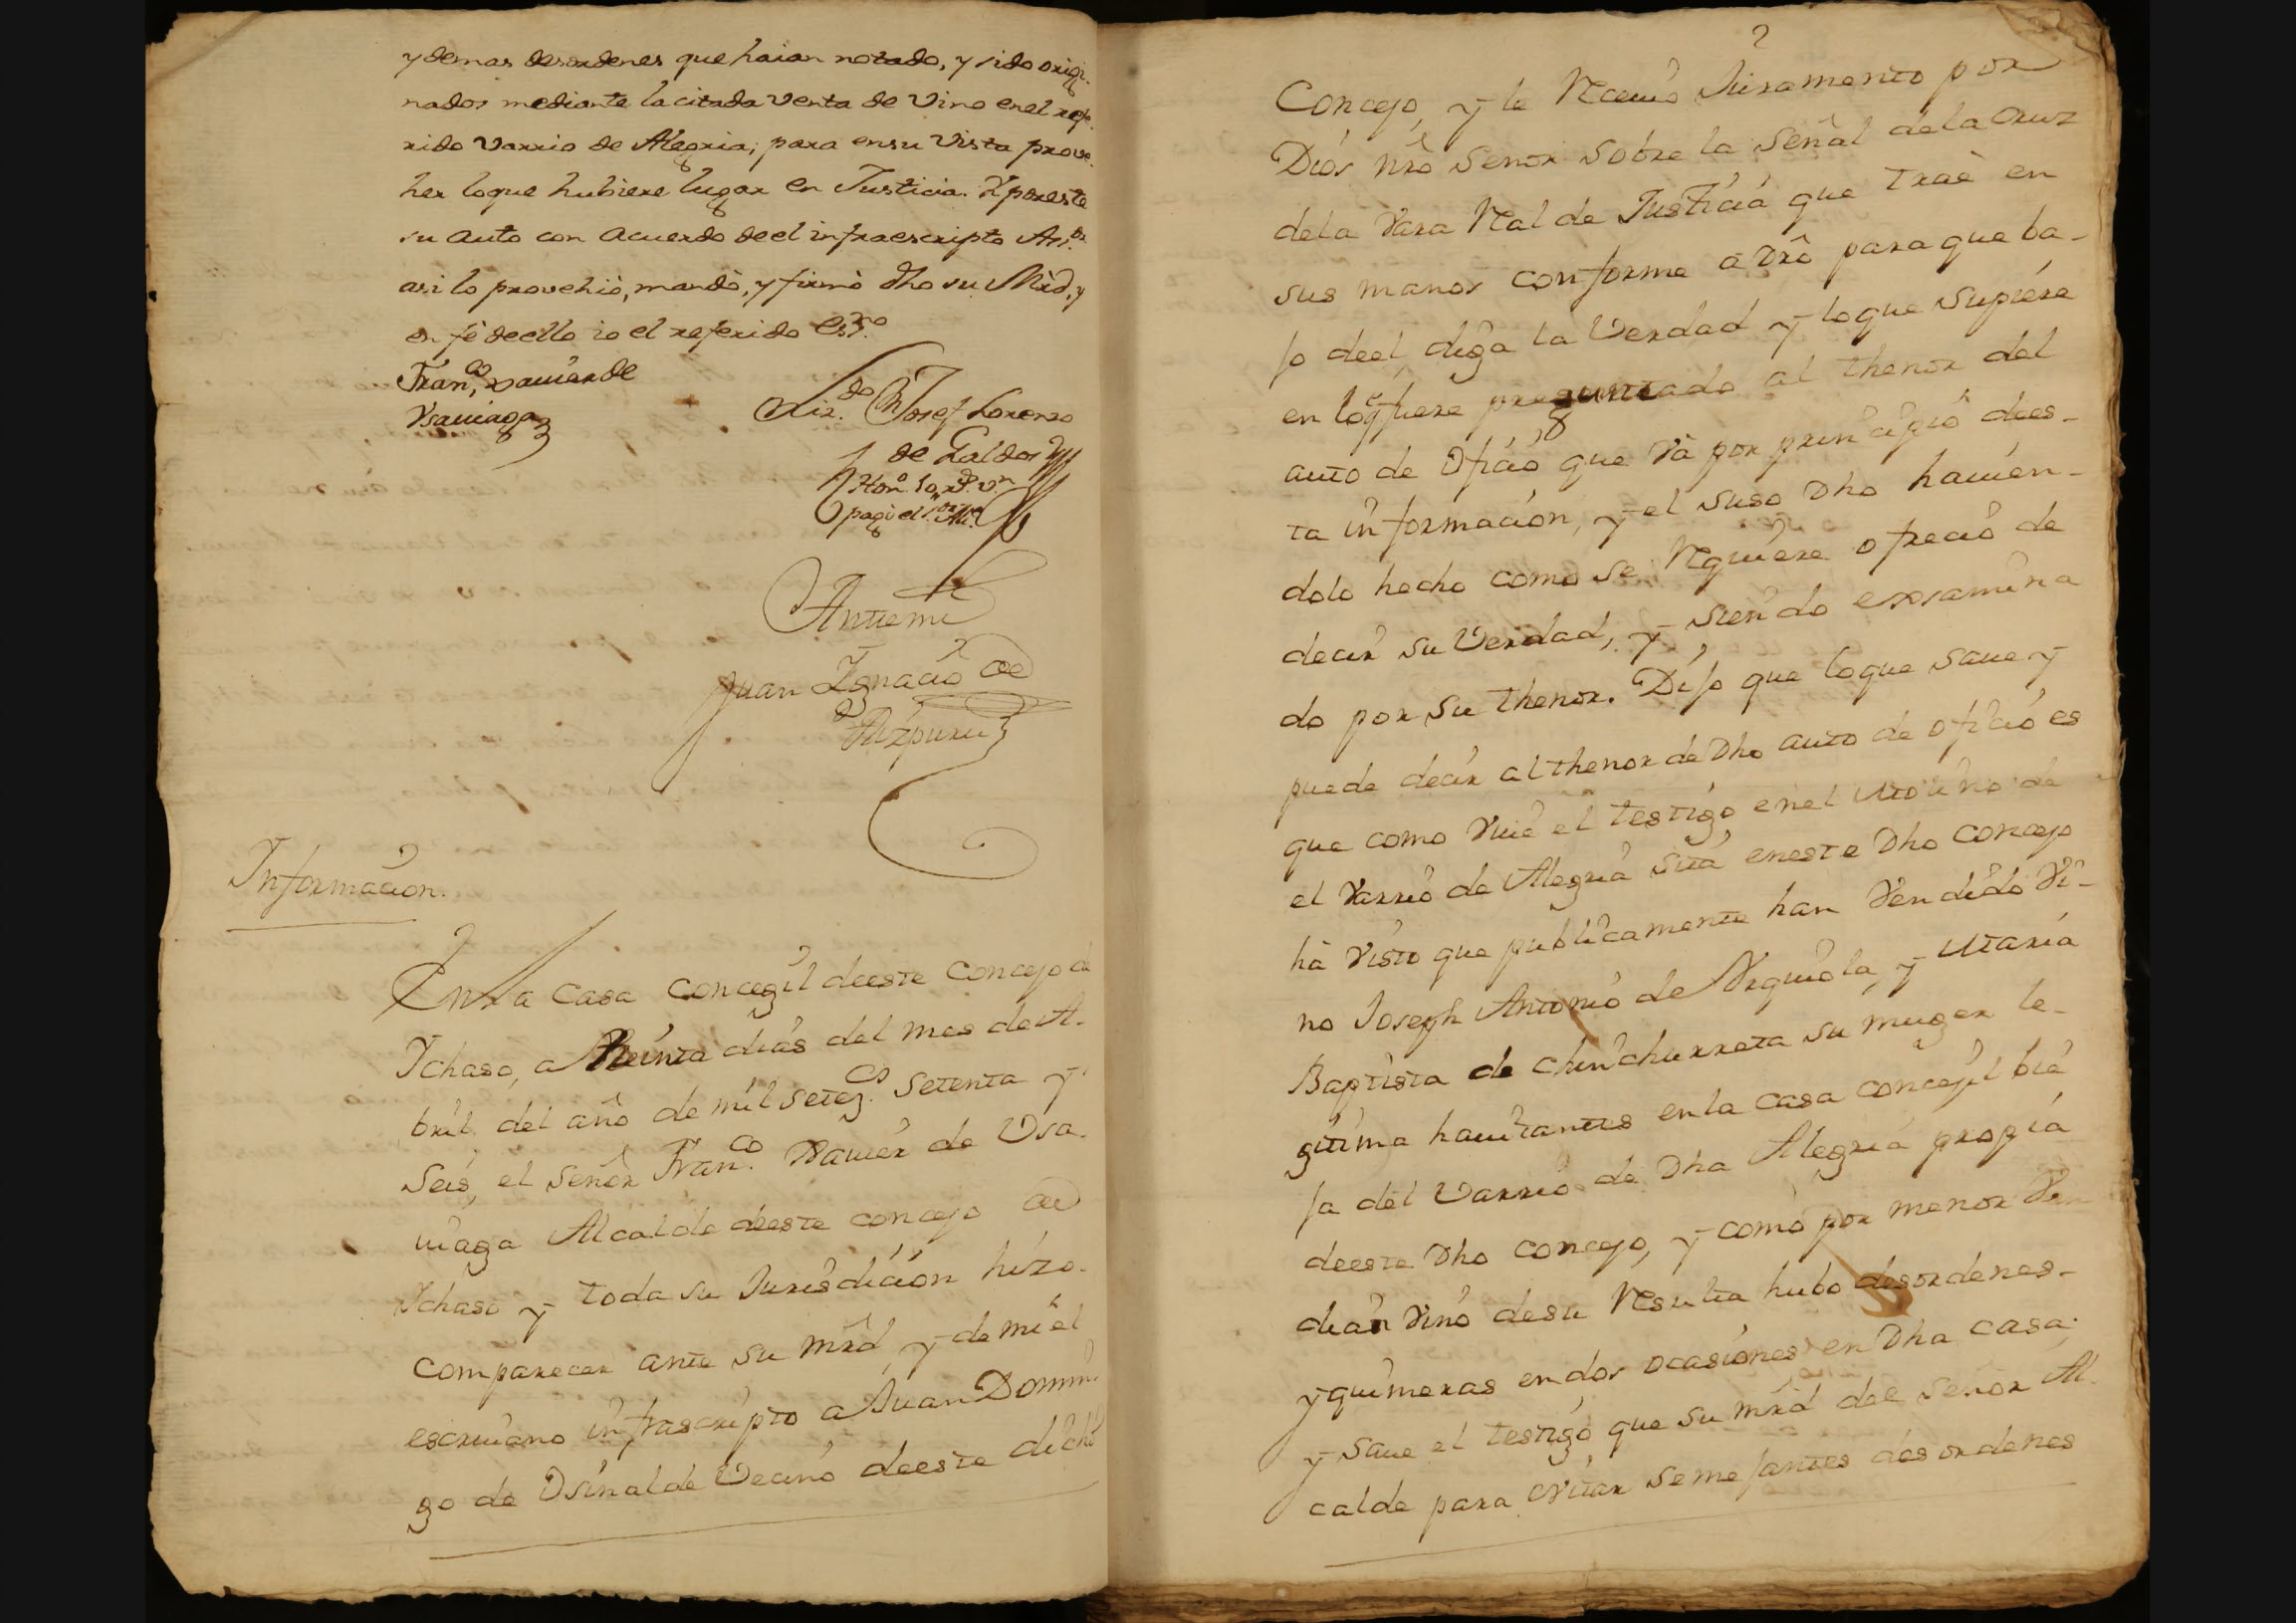 y demas desordenes que haian notado, y sido origi-
nados mediante la citada venta de Vino en el refe-
rido varrio de Alegria; para en su Vista prove-
her lo que hubiere lugar en Justicia. Y por este
su auto con acuerdo de el infraescripto Asr.
asi lo provehiò, mandò, y firmò dho su Mrd, y
en fè de ello io el referido Essno
Franco Xavier de
Vsauiaga
Liz.do Dn Josef Lorenzo
de Galdos
Honos. 10 rs. vn.
pagò el Sor. Alc.
Antemi
Juan Ignacio de
Aizpuru
Informacion.
En la Casa Concegil de este Concejo de
Ychaso, a treinta dias del mes de A-
bril del año de mil setezos. setenta y
seis, el señor Franco. Xauier de Vsa-
uiaga Alcalde de este concejo de
Ychaso y toda su Jurisdicion hizo
comparecer ante su mrd, y de mi el
escriuano infrascripto a Juan Domin-
go de Osinalde Vecino de este dicho
2
Concejo, y le Reciuiò Juramento por
Dios nrô Señor sobre la señal de la Cruz
de la Vara Real de Justicia que traè en
sus manos conforme a drô para que ba-
jo de el, diga la Verdad y lo que supiere
en lo q fuere preguntado al thenor del
auto de Oficio que và por principio de es-
ta informacion, y el suso dho hauien-
dolo hecho como se Requiere ofreciò de
decir su Verdad, y siendo exsamina
do por su thenor. Dijo que lo que saue y
puede decir al thenor de dho auto de oficio es
que como Viuè el testigo en el Molino de
el Varrio de Alegria sita en este dho concejo
hà Visto que publicamente han Vendido Vi-
no Joseph Antonio de Vrquiola, y Maria
Baptista de chinchurreta su muger le-
gitima hauitantes en la casa concejil bie
ja del Varrio de dha Alegria propia
de este dho concejo, y como por menor Ven
dian Vino de su Resulta hubo desordenes-
y quimeras en dos ocasiones en dha casa;
y saue el testigo que su mrd del señor Al-
calde para evitar semejantes desordenes